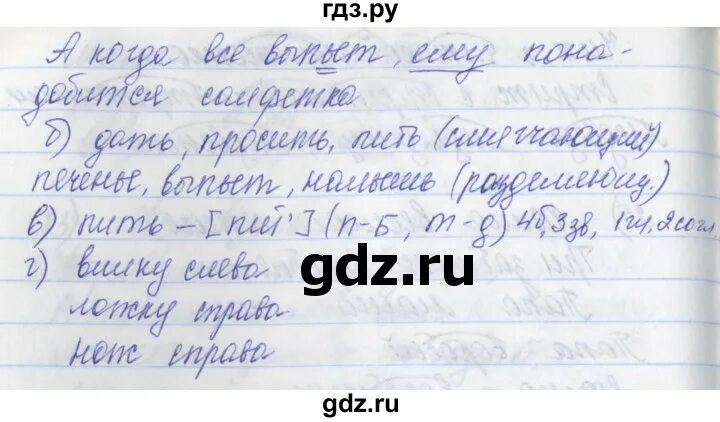 гдз.ру
А когда все выпьет, ему пона-
добится салфетка
б) дать, просить, пить (смягчающий)
печенье, выпьет, нальешь (разделяющ.)
в) пить – [пит'] (п-б, т-д) 4б, 3зв, 1гл, 2согл.
г) вилку слева
ложку справа
нож справа
gdz.ru
gdz.ru